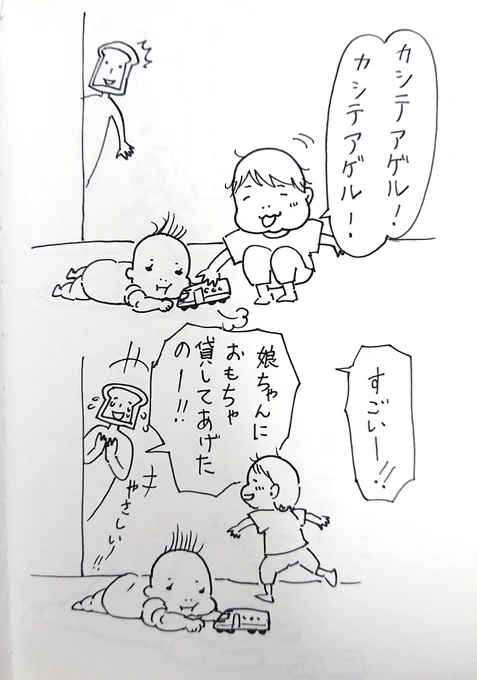 カシテアゲル!
カシテアゲル!
すごいー!!
娘ちゃんに
おもちゃ
貸してあげた
のー!!
キ
やさしいー!